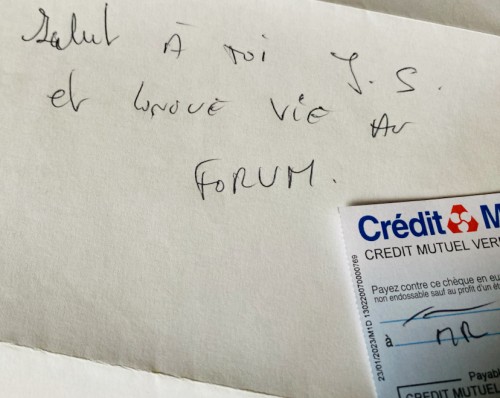 Salut À toi J. S.
et longue vie au
FORUM.
Crédit M
CREDIT MUTUEL VER
Payez contre ce chèque en eu
non endossable sauf au profit d'un ét
à MR
Payab
CREDIT MUTUEL
23/01/2023/M1D 130220070000769